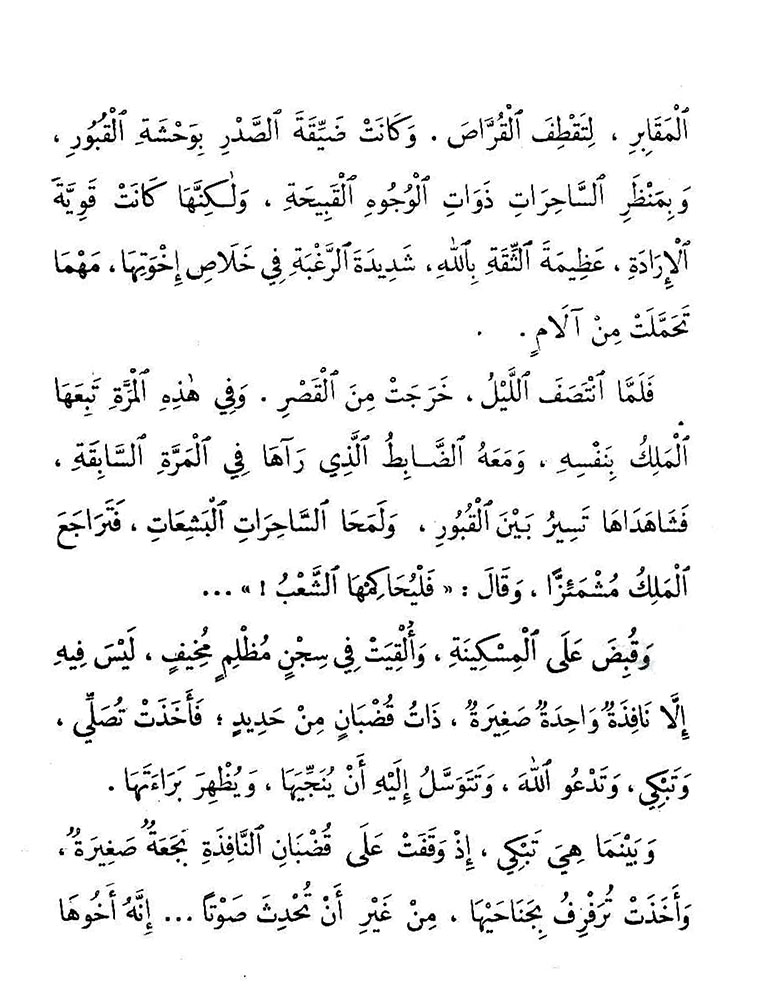 ٱلْمَقَابِرِ ، لِتَقْطِفَ ٱلْقُرَّاصَ . وَكَانَتْ ضَيِّقَةَ ٱلصَّدْرِ بِوَحْشَةِ ٱلْقُبُورِ ،
وَبِمَنْظَرِ ٱلسَّاحِرَاتِ ذَوَاتِ ٱلْوُجُوهِ ٱلْقَبِيحَةِ ، وَلٰكِنَّهَا كَانَتْ قَوِيَّةَ
ٱلْإِرَادَةِ ، عَظِيمَةَ ٱلثِّقَةِ بِٱللهِ، شَدِيدَةَ ٱلرَّغْبَةِ فِي خَلَاصِ إِخْوَتِهَا ، مَهْمَا
تَحَمَّلَتْ مِنْ آلَامٍ .
فَلَمَّا ٱنْتَصَفَ ٱللَّيْلُ ، خَرَجَتْ مِنَ ٱلْقَصْرِ . وَفِي هٰذِهِ ٱلْمَرَّةِ تَبِعَهَا
ٱلْمَلِكُ بِنَفْسِهِ ، وَمَعَهُ ٱلضَّابِطُ ٱلَّذِي رَآهَا فِي ٱلْمَرَّةِ ٱلسَّابِقَةِ ،
فَشَاهَدَاهَا تَسِيرُ بَيْنَ ٱلْقُبُورِ ، وَلَمَحَا ٱلسَّاحِرَاتِ ٱلْبَشِعَاتِ ، فَتَرَاجَعَ
ٱلْمَلِكُ مُشْمَئِزًّا ، وَقَالَ : « فَلْيُحَاكِمْهَا ٱلشَّعْبُ ! » ...
وَقُبِضَ عَلَى ٱلْمِسْكِينَةِ ، وَأُلْقِيَتْ فِي سِجْنٍ مُظْلِمٍ مُخِيفٍ ، لَيْسَ فِيهِ
إِلَّا نَافِذَةٌ وَاحِدَةٌ صَغِيرَةٌ ، ذَاتُ قُضْبَانٍ مِنْ حَدِيدٍ ؛ فَأَخَذَتْ تُصَلِّي ،
وَتَبْكِي، وَتَدْعُو ٱللهَ ، وَتَتَوَسَّلُ إِلَيْهِ أَنْ يُنَجِّيَهَا ، وَيُظْهِرَ بَرَاءَتَهَا .
وَبَيْنَمَا هِيَ تَبْكِي ، إِذْ وَقَفَتْ عَلَى قُضْبَانِ ٱلنَّافِذَةِ بَجَعَةٌ صَغِيرَةٌ ،
وَأَخَذَتْ تُرَفْرِفُ بِجَنَاحَيْهَا ، مِنْ غَيْرِ أَنْ تُحْدِثَ صَوْتًا ... إِنَّهُ أَخُوهَا